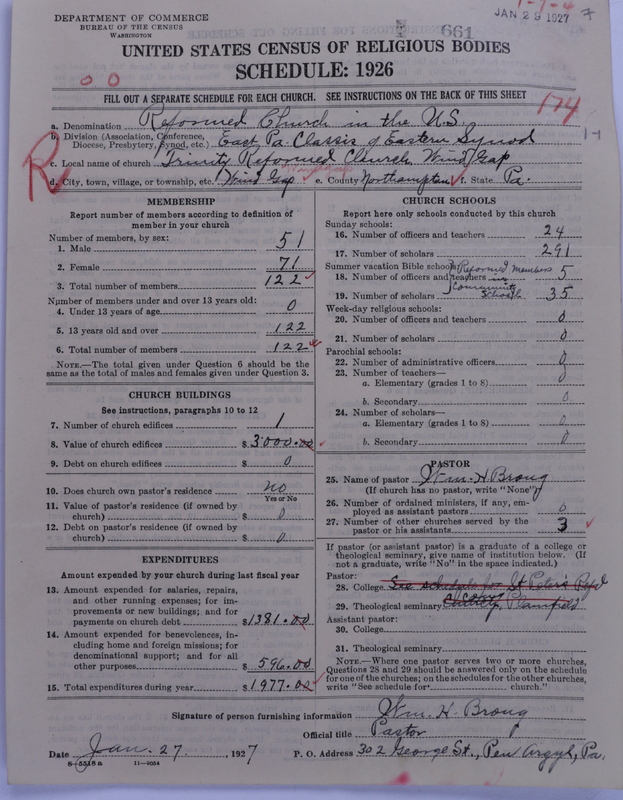 DEPARTMENT OF COMMERCE
BUREAU OF THE CENSUS
WASHINGTON
661
JAN 29 1927
UNITED STATES CENSUS OF RELIGIOUS BODIES
SCHEDULE: 1926
FILL OUT A SEPARATE SCHEDULE FOR EACH CHURCH. SEE INSTRUCTIONS ON THE BACK OF THIS SHEET
174
a. Denomination Reformed Church in the U.S.
b. Division (Association, Conference, Diocese, Presbytery, Synod, etc.) East Pa. Classis of Eastern Synod
c. Local name of church Trinity Reformed Church, Wind Gap
R
d. City, town, village, or township, etc. Wind Gap e. County Northampton f. State Pa.
MEMBERSHIP
Report number of members according to definition of
member in your church
Number of members, by sex:
1. Male 51
2. Female 71
3. Total number of members 122
Number of members under and over 13 years old:
4. Under 13 years of age 0
5. 13 years old and over 122
6. Total number of members 122
NOTE.—The total given under Question 6 should be
same as the total of males and females given under Question 3.
CHURCH BUILDINGS
See instructions, paragraphs 10 to 12
7. Number of church edifices 1
8. Value of church edifices $ 3000.00
9. Debt on church edifices $ 0
10. Does church own pastor's residence no
Yes or No
11. Value of pastor's residence (if owned by
church) $ 0
12. Debt on pastor's residence (if owned by
church) $ 0
EXPENDITURES
Amount expended by your church during last fiscal year
13. Amount expended for salaries, repairs,
and other running expenses; for im-
provements or new buildings; and for
payments on church debt $ 1381.00
14. Amount expended for benevolences, in-
cluding home and foreign missions; for
denominational support; and for all
other purposes $ 596.00
15. Total expenditures during year $ 1977.00
CHURCH SCHOOLS
Report here only schools conducted by this church
Sunday schools:
16. Number of officers and teachers 24
17. Number of scholars 291
Summer vacation Bible schools: Reformed members
18. Number of officers and teachers in 5
Community
19. Number of scholars School 35
Week-day religious schools:
20. Number of officers and teachers 0
21. Number of scholars 0
Parochial schools:
22. Number of administrative officers 0
23. Number of teachers—
a. Elementary (grades 1 to 8) 0
b. Secondary 0
24. Number of scholars—
a. Elementary (grades 1 to 8) 0
b. Secondary 0
PASTOR
25. Name of pastor Wm. H. Brong
(If church has no pastor, write "None")
26. Number of ordained ministers, if any, em-
ployed as assistant pastors 0
27. Number of other churches served by the
pastor or his assistants 3
If pastor (or assistant pastor) is a graduate of a college or
theological seminary, give name of institution below. (If
not a graduate, write "No" in the space indicated.)
Pastor:
28. College See schedule for St Peter's Refd
29. Theological seminary Plainfield
Assistant pastor:
30. College
31. Theological seminary
NOTE.—Where one pastor serves two or more churches,
Questions 28 and 29 should be answered only on the schedule
for one of the churches; on the schedules for the other churches,
write "See schedule for church."
Signature of person furnishing information Wm. H. Brong
Official title Pastor
Date Jan. 27, 1927 P. O. Address 302 George St., Pen Argyl, Pa.
8—5518 a 11—9054